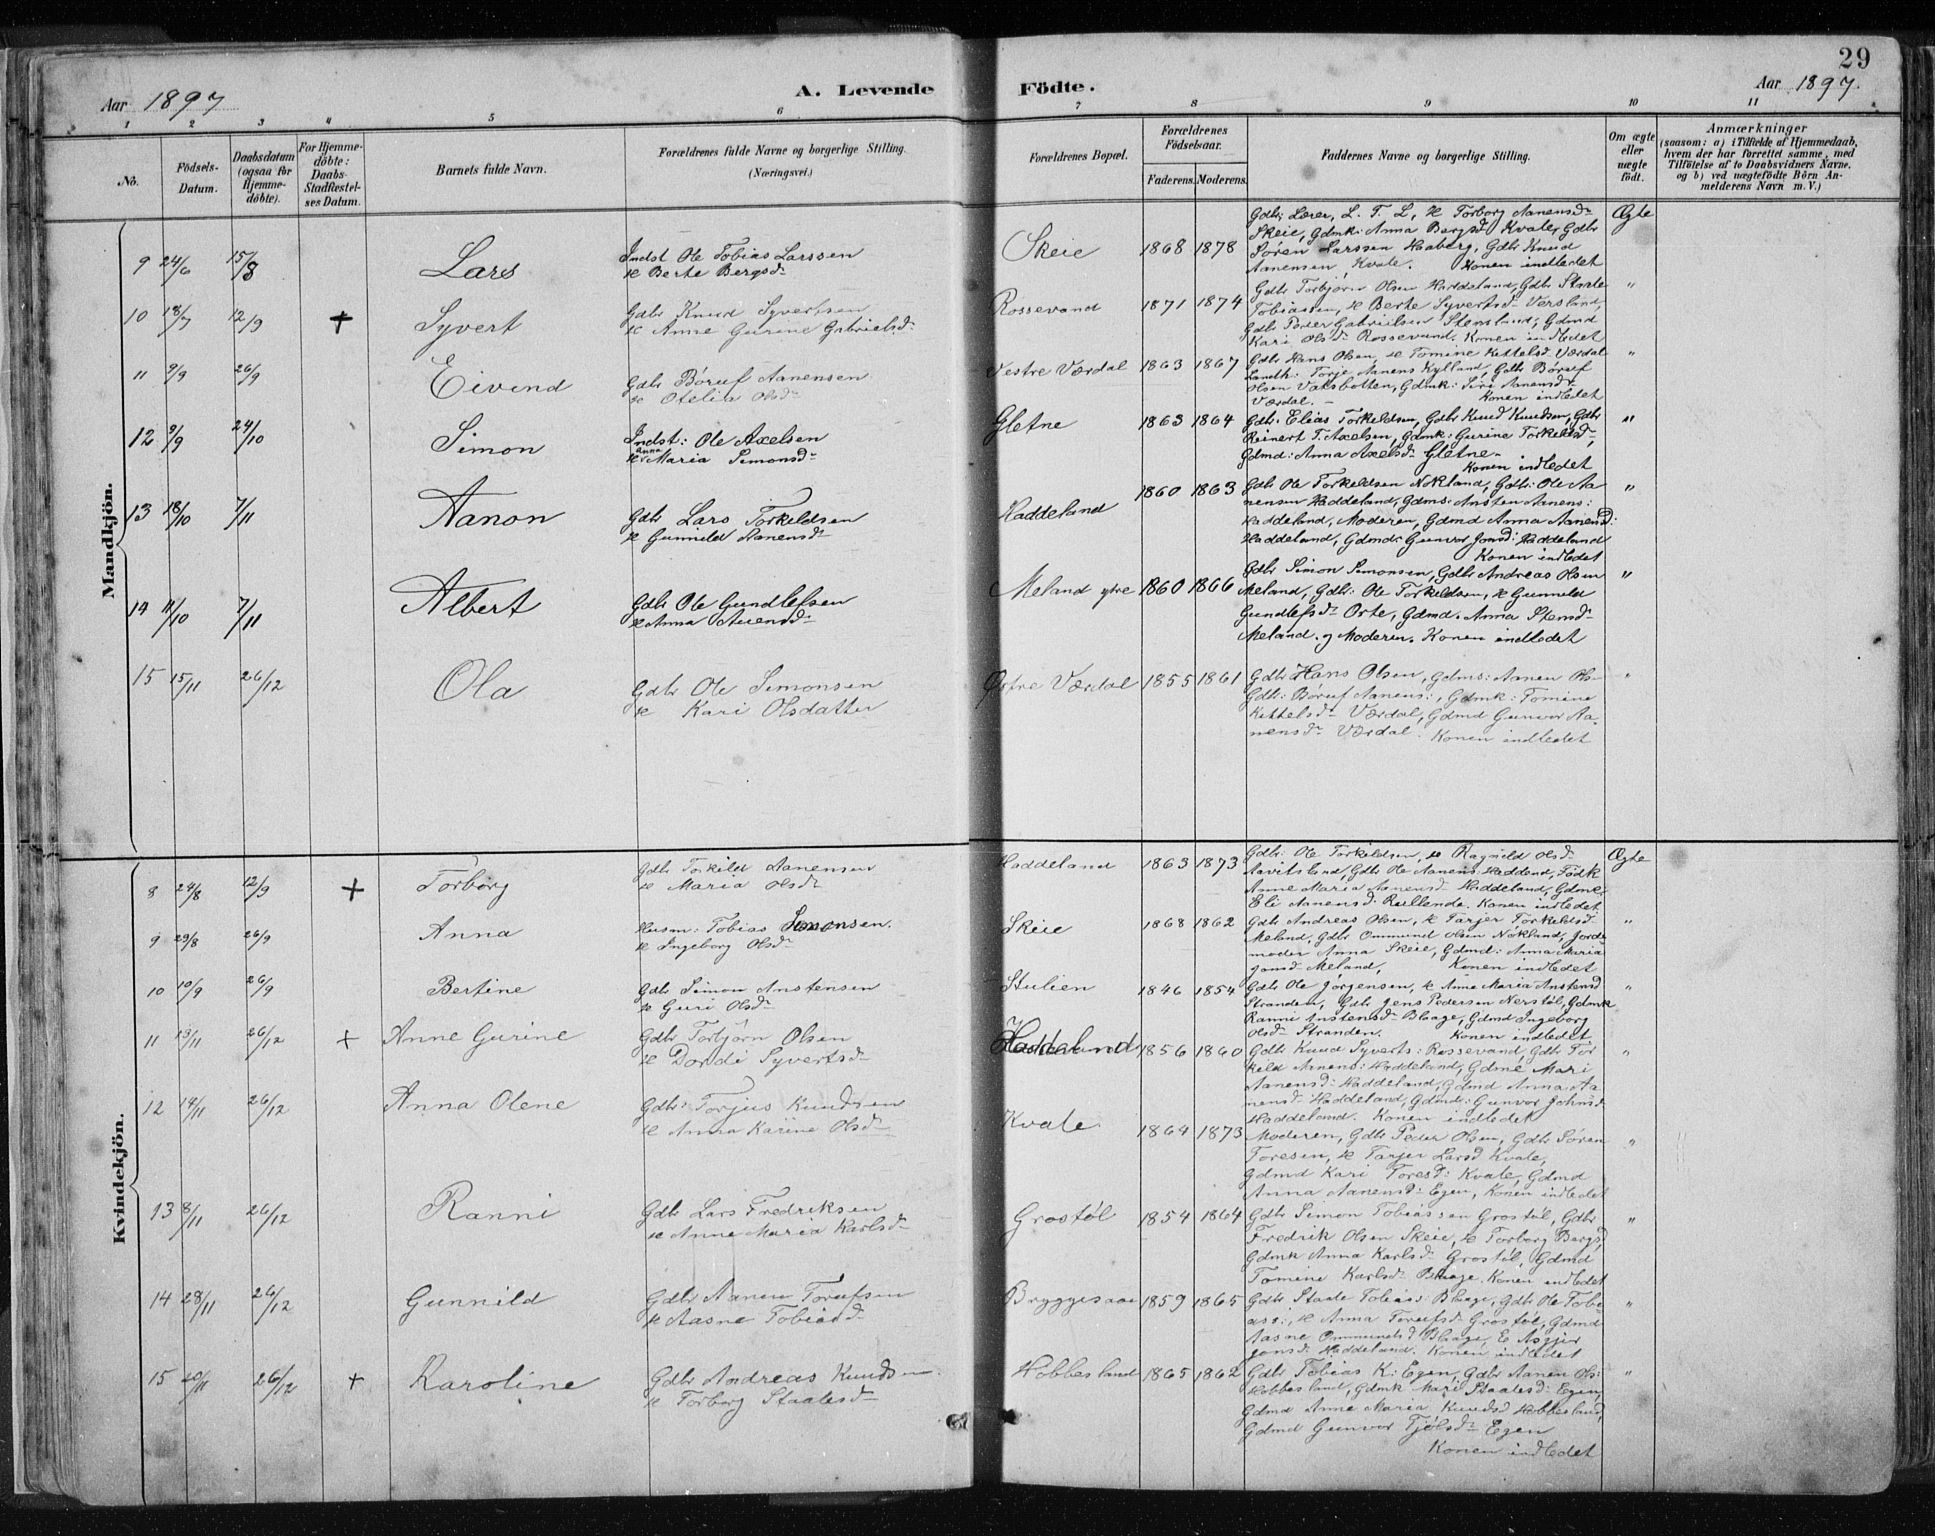 29
Aar 1897
A. Levende Födte.
Aar 1897.
1 2 3 4 5 6 7 8 9 10 11
No.
Födsels-Datum.
Daabsdatum (ogsaa for Hjemme-döbte).
For Hjemme-döbte: Daabs-Stadfæstel-ses Datum.
Barnets fulde Navn.
Forældrenes fulde Navne og borgerlige Stilling. (Næringsvei.)
Forældrenes Bopæl.
Forældrenes Födselsaar.
Faderens. Moderens.
Faddernes Navne og borgerlige Stilling.
Om ægte eller uægte födt.
Anmærkninger
(saasom: a) i Tilfælde af Hjemmedaab,
hvem der har forrettet samme, med
Tilföielse af to Daabsvidners Navne,
og b) ved uægtefödte Börn An-
melderens Navn m. V.)
Mandkjön.
9 24/6 15/8 Lars
Indst Ole Tobias Larssen
& Berte Bergsdr
Skeie 1868 1878
Gdbr Lærer, L. T. L, & Torborg Aanensdr
Skeie, Gdmk: Anna Bergsdr Kvale, Gdbr
Sören Larssen Haaberg, Gdbr Knud
Aanensen Kvale. Konen indledet
Ægte
10 18/7 12/9 + Syvert
Gdbr Knud Syvertsen
& Anne Gurine Gabrielsdr
Rossevand 1871 1874
Gdbr Torbjörn Olsen Haddeland, Gdbr Staale
Tobiassen, & Berte Syvertsdr Versland,
Gdbr Peder Gabrielsen Stensland, Gdmd
Kari Olsdr Rossevand. Konen indledet
"
11 9/9 26/9 Eivind
Gdbr Böruf Aanensen
& Otelia Olsdr
Vestre Værdal 1863 1867
Gdbr Hans Olsen, & Tomine Kettelsd. Værdal
Landh: Torje Aanens Kylland, Gdbr Böruf
Olsen Vatsbotten, Gdmk: Siri Aanensdr
Værdal. - Konen indledet
"
12 9/9 24/10 Simon
Indst: Ole Axelsen
& Anna Maria Simonsdr
Gletne 1863 1864
Gdbr. Elias Torkeldsen, Gdbr Knud Knudsen, Gdbr
Reinert T. Axelsen, Gdmk: Gurine Torkeldsdr,
Gdmd: Anna Axelsdr Gletne.
Konen indledet
"
13 18/10 7/11 Aanon
Gdbr Lars Torkeldsen
& Gunnild Aanensdr
Haddeland 1860 1863
Gdbr Ole Torkeldsen Nökland, Gdbr: Ole Aa-
nensen Haddeland, Gdms: Ansten Aanens:
Haddeland, Moderen, Gdmd Anna Aanensd:
Haddeland, Gdmd Gunvor Jonsd: Haddeland
Konen indledet
"
14 11/10 7/11 Albert
Gdbr Ole Gundlefsen
& Anna Stiensdr
Meland ytre 1860 1866
Gdbr Simon Simonsen, Gdbr Andreas Olsen
Meland, Gdbr: Ole Torkeldsen, & Gunnild
Gundlefsdr Orte, Gdmd: Anna Stensdr
Meland. og Moderen. Konen indledet
"
15 15/11 26/12 Ola
Gdbr Ole Simonsen
& Kari Olsdatter
Östre Værdal 1855 1861
Gdbr Hans Olsen, Gdms: Aanen Ols-
Gdbr: Böruf Aanens:, Gdmk: Tomine
Kettelsdr Værdal, Gdmd Gunvor Aa-
nensdr Værdal. Konen indledet
"
Kvindekjön.
8 24/8 12/9 + Torborg
Gdbr Torkild Aanensen
& Maria Olsdr
Haddeland 1863 1873
Gdbr: Ole Torkildsen, & Ragnild Olsd:
Aavitsland, Gdbr Ole Aanens Haddeland, Födk
Anne Maria Aanensdr Haddeland, Gdmk.
Eli Aanensd. Rullende. Konen indledet
Ægte
9 29/8 26/9 Anna
Husm: Tobias Simonsen.
& Ingeborg Olsdr
Skeie 1868 1862
Gdbr Andreas Olsen, & Tarjer Torkeldsdr
Meland, Gdbr Ommund Olsen Nökland, Jorde-
moder Anna Skeie, Gdmd: Anna Maria
Jonsdr Meland, Konen indledet
"
10 10/9 26/9 Bertine
Gdbr Simon Anstensen
& Guri Olsdr
Stulien 1846 1854
Gdbr Ole Jörgensen, & Anne Maria Anstensd
Stranden, Gdbr Jens Pedersen Nerstöl, Gdmk
Ranni Anstensdr Blaage, Gdmd Ingeborg
Olsdr Stranden. Konen indledet
"
11 13/11 26/12 + Anne Gurine
Gdbr Torbjörn Olsen
& Dordi Syvertsdr
Haddeland 1856 1860
Gdbr Knud Syverts: Rossevand, Gdbr Tor
keld Aanens: Haddeland, Gdme Mari
Aanensd: Haddeland, Gdmd Anna Aa
nensdr Haddeland, Gdmd: Gunvor Johnsd
Haddeland. Konen indledet
"
12 14/11 26/12 Anna Olene
Gdbr: Torjus Knudsen
& Anna Karine Olsdr
Kvale 1864 1873
Moderen, Gdbr Peder Olsen, Gdbr Sören
Toresen, & Tarjer Larsd Kvale,
Gdmd Kari Toresd: Kvale, Gdmd
Anna Aanensd: Egen, Konen indledet
"
13 8/11 26/12 Ranni
Gdbr Lars Fredriksen
& Anne Maria Karlsdr
Grostöl 1854 1864
Gdbr Simon Tobiassen Grostöl, Gdbr
Fredrik Olsen Skeie, & Torborg Bergsd,
Gdmk Anna Karlsdr Grostöl, Gdmd
Tomine Karlsdr Blaage. Konen indledet
"
14 28/11 26/12 Gunnild
Gdbr Aanen Torufsen
& Aasne Tobiasd
Bryggesaae 1859 1865
Gdbr Staale Tobias: Blaage, Gdbr Ole Tobi-
ass:, & Anna Torufsdr Grostöl, Gdmd
Aasne Ommundsd Blaage, E Asgjer
Jonsd: Haddeland. Konen indledet
"
15 20/11 26/12 + Karoline
Gdbr Andreas Knudsen.
& Torborg Staalesdr
Hobbesland 1865 1862
Gdbr Tobias K: Egen, Gdbr Aanen Ols:
Hobbesland, Gdmk Mari Staalesd: Egen,
Gdmd Anne Maria Knudsd Hobbesland,
Gdmd Gunvor Tjölsdr Egen
Konen indledet
"